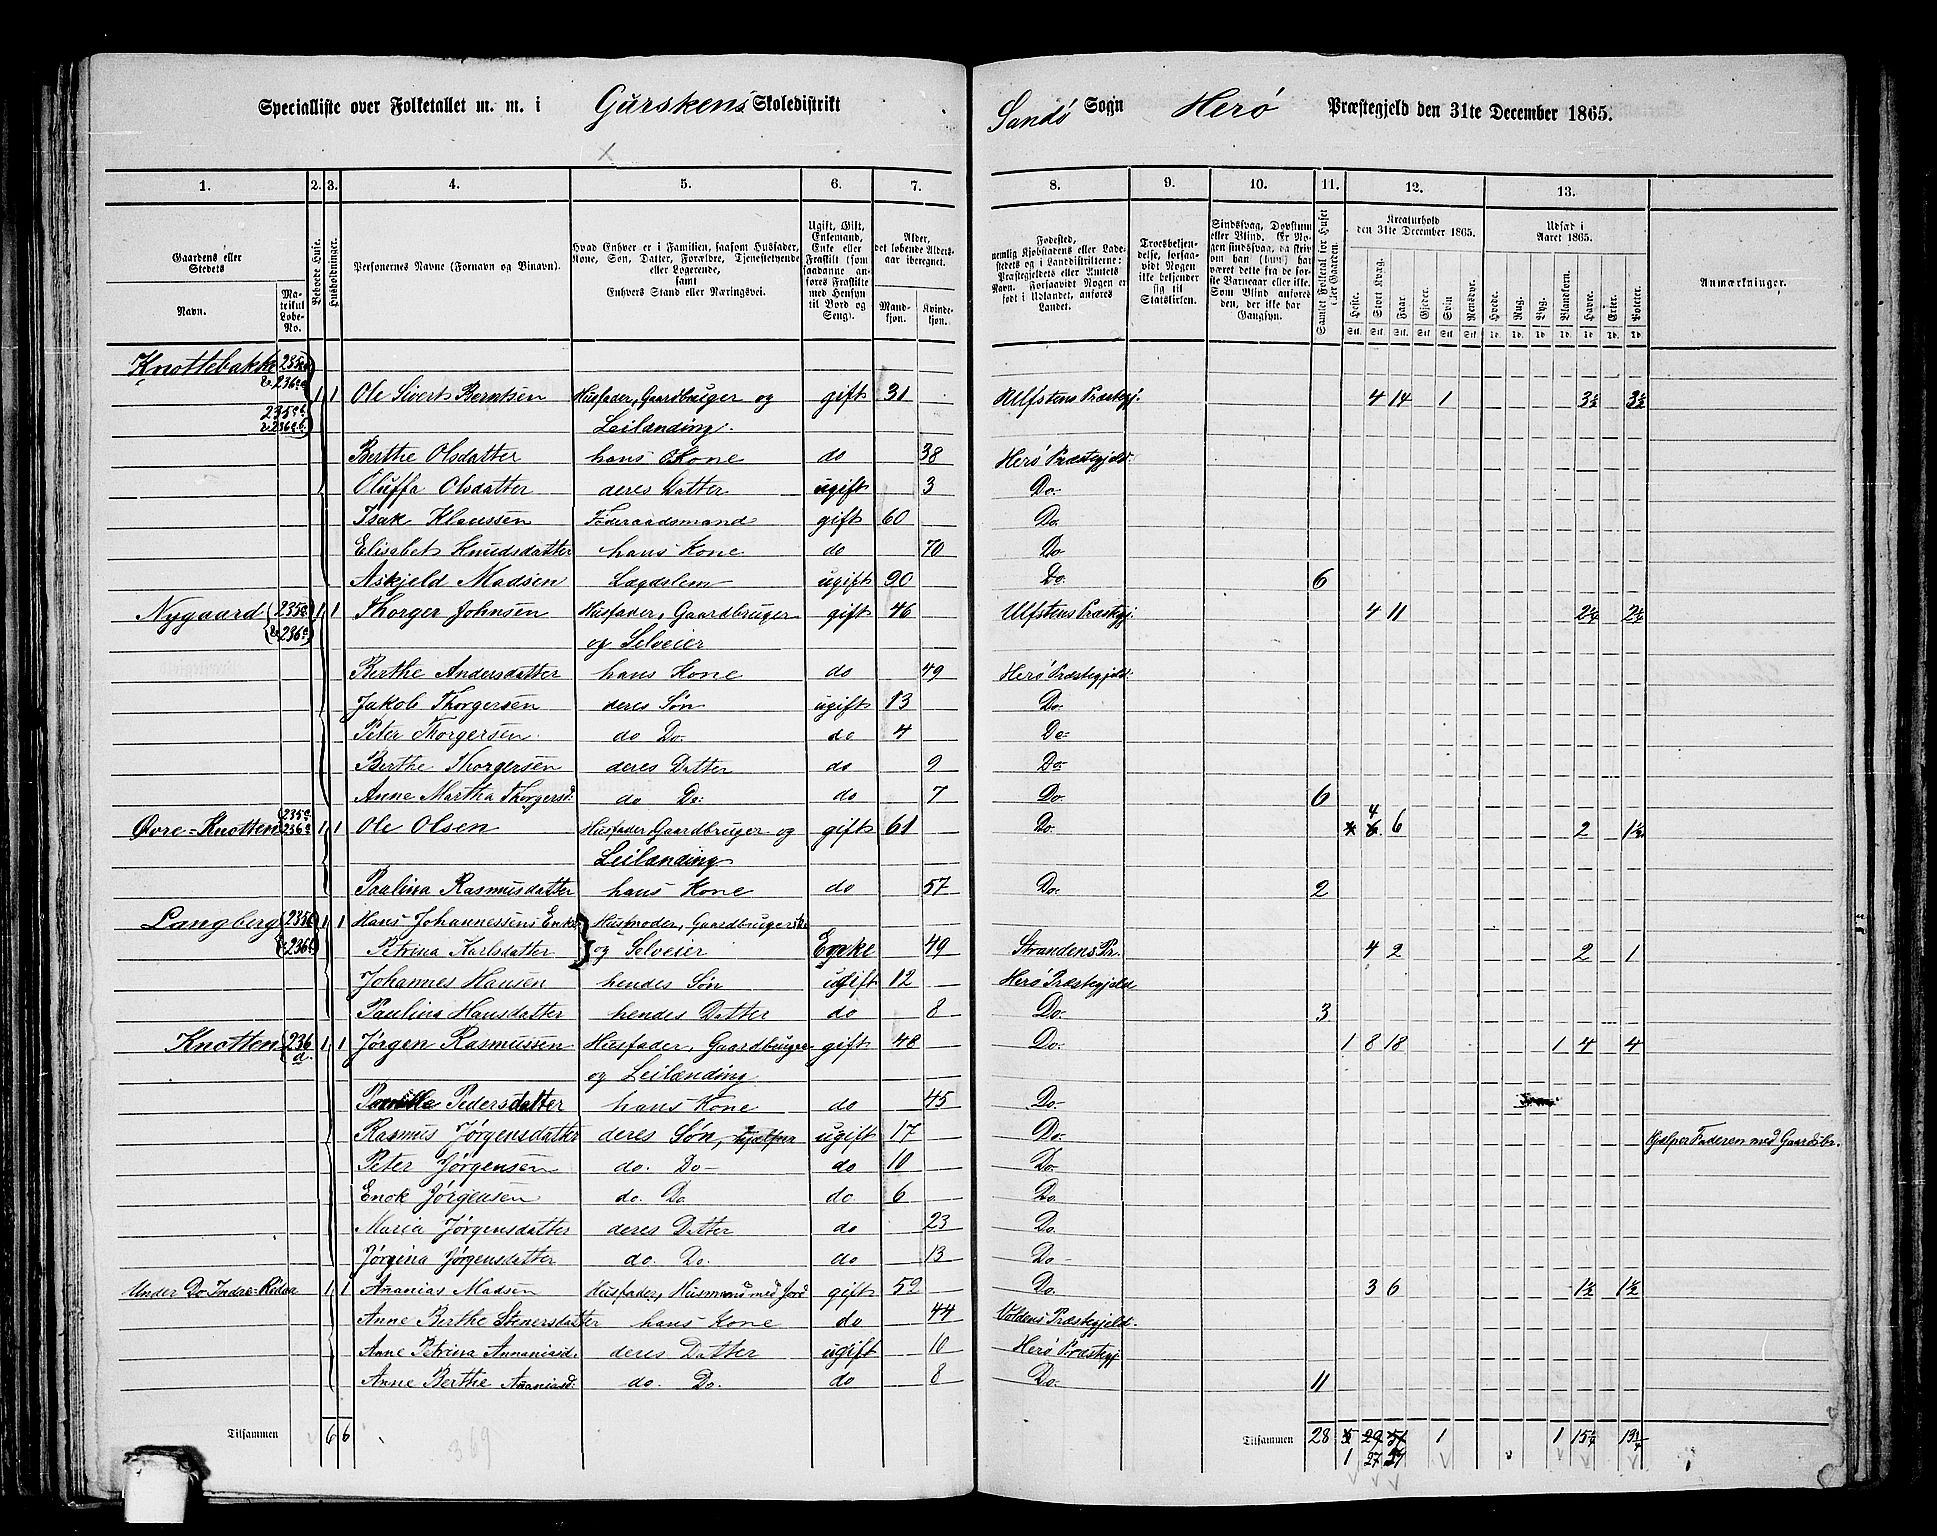 Specialliste over Folketallet m. m. i Gurskens Skoledistrikt Sandø Sogn Herø Præstegjeld den 31te December 1865.
1. 2. 3. 4. 5. 6. 7. 8. 9. 10. 11. 12. 13.
Gaardens eller Stedets
Navn.
Matrikul Løbe-No.
Beboede Huse.
Husholdninger.
Personernes Navne (Fornavn og Binavn).
Hvad Enhver er i Familien, saasom Husfader, Kone, Søn, Datter, Forældre, Tjenestetyende eller Logerende, samt Enhvers Stand eller Næringsvei.
Ugift, Gift, Enkemand, Enke eller Fraskilt (som saadanne anføres Fraskilte med Hensyn til Bord og Seng).
Alder, det løbende Alders-aar iberegnet.
Mand-kjøn.
Kvinde-kjøn.
Fødested, nemlig Kjøbstadens eller Ladestedets og i Landdistrikterne: Præstegjeldets eller Amtets Navn. Forsaavidt Nogen er født i Udlandet, anføres Landet.
Troesbekjendelse, forsaavidt Nogen ikke bekjender sig til Statskirken.
Sindssvag, Døvstum eller Blind. Er Nogen sindssvag, da skrives om han (hun) har været dette fra de første Barneaar eller ikke. Som Blind anføres den, der ikke har Gangsyn.
Samlet Folketal for Huset eller Gaarden.
Kreaturhold den 31te December 1865.
Heste. Stort Kvæg. Faar. Gjeder. Svin Rensdyr.
Udsæd i Aaret 1865.
Hvede. Rug. Byg. Blandkorn. Havre. Erter. Poteter.
Anmærkninger.
Knottebakke 235 & 236 1 1 Ole Sivert Berntsen Husfader, Gaardbruger og gift 31 Ulfstens Præstegj. 4 14 1 3½ 3½
Leilænding.
Berthe Olsdatter hans Kone do 38 Herø Præstegjeld.
Oluffa Olsdatter deres Datter ugift 3 Do.
Isak Klaussen Føderaadsmand gift 60 Do
Elisabet Knudsdatter hans Kone do 70 Do
Askjeld Madsen Lægdslem ugift 90 Do. 6
Nygaard 235 & 236 1 1 Thorger Johnsen Husfader, Gaardbruger gift 46 Ulfstens Præstegj. 4 11
og Selveier
Berthe Andersdatter hans Kone do 49 Herø Præstegjeld.
Jakob Thorgersen deres Søn ugift 13 Do.
Peter Thorgersen. do Do. do 4 Do
Berthe Thorgersen deres Datter do 9 Do
Anne Martha Thorgersd: do Do: do 7 Do 6
Øvre-Knotten 235 236 1 1 Ole Olsen Husfader Gaardbruger og gift 61 Do. 4 6 2 1½
Leilænding
Paulina Rasmusdatter hans Kone do 57 Do. 2
Langberg 235 & 236 1 1 Hans Johannessens Enke Husmoder, Gaardbrugerske
Petrina Karlsdatter og Selveier Enke 49 Strandens Pr. 4 2 2 1
Johannes Hansen hendes Søn ugift 12 Herø Præstegjeld
Paulina Hansdatter hendes Datter do 8 Do 3
Knotten 236 d. 1 1 Jørgen Rasmussen Husfader, Gaardbruger gift 48 Do. 1 8 18 1 4 4
og Leilænding
Pedersdatter hans Kone do 45 Do.
Rasmus Jørgensdatter deres Søn, ugift 17 Do. hjælper Faderen med Gaardsbr.
Peter Jørgensen do. Do do 10 Do
Enok Jørgensen do. Do do 6 Do.
Maria Jørgensdatter deres Datter do 23 Do.
Jørgina Jørgensdatter do. Do. do 13 Do
Under Do Indre- 1 1 Ananias Madsen Husfader, Husmand med Jord gift 52 Do. 3 6 1½ 1½
Anne Berthe Stenersdatter hans Kone do 44 Voldens Præstegjeld.
Anne Petrina Annaniasd. deres Datter ugift 10 Herø Præstegj
Anne Berthe Ananiasd: do. Do. do 8 Do. 11
Tilsammen 6 6 Tilsammen 28 1 1
1 27
369